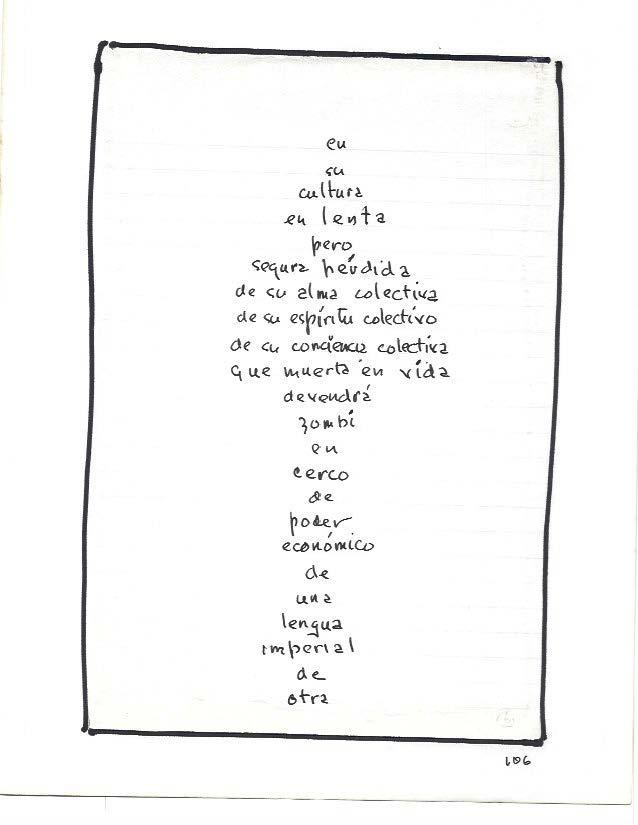 en
su
cultura
en lenta
pero
segura pérdida
de su alma colectiva
de su espíritu colectivo
de su conciencia colectiva
que muerta en vida
devendrá
zombi
en
cerco
de
poder
económico
de
una
lengua
imperial
de
otra
106